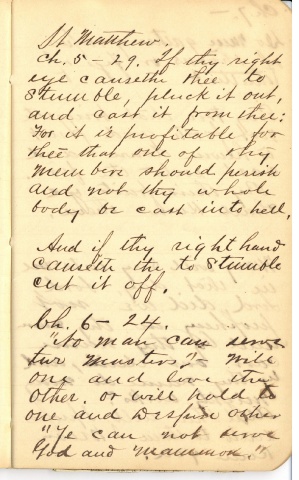 St Matthew.
Ch. 5 - 29. If thy right
eye causeth thee to
stumble, pluck it out,
and cast it from thee:
For it is profitable for
thee that one of thy
members should perish
and not thy whole
body be cast into hell.
And if thy right hand
causeth thy to stumble
cut it off.
Ch. 6 - 24.
"No man can serve
two masters," - will
one and love the
other. or will hold to
one and Despise other
"Ye can not serve
God and mammon."